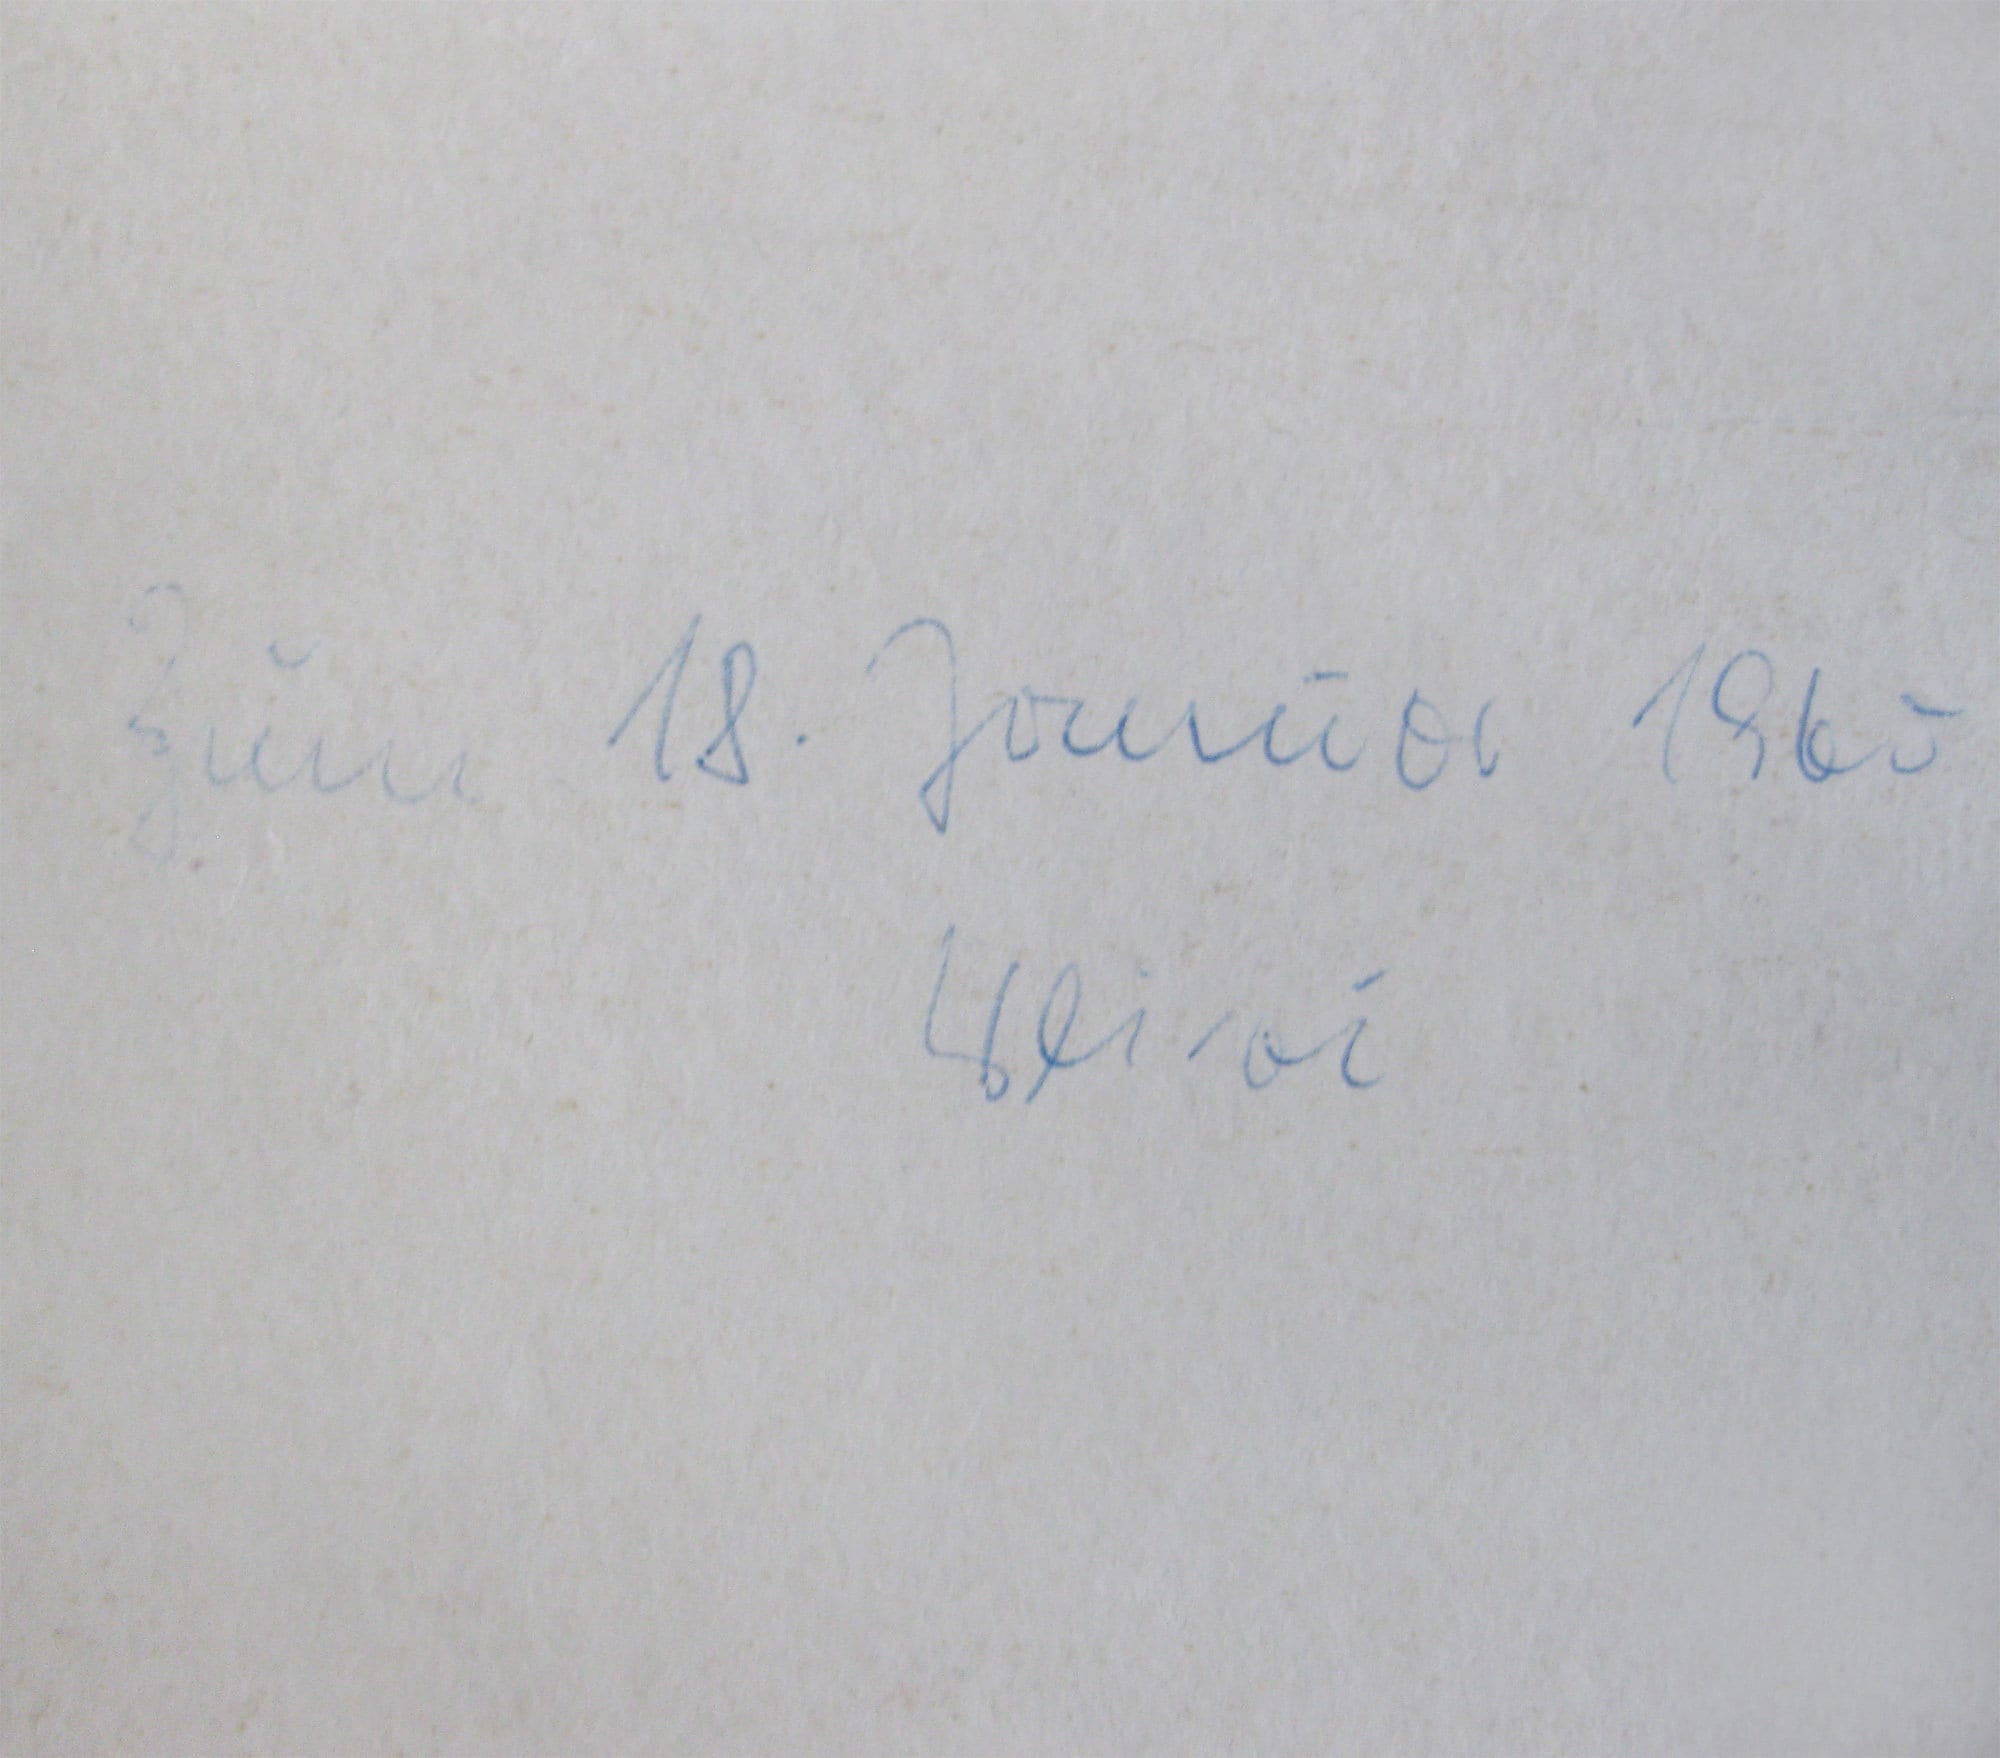 Zum 18. Januar 1965